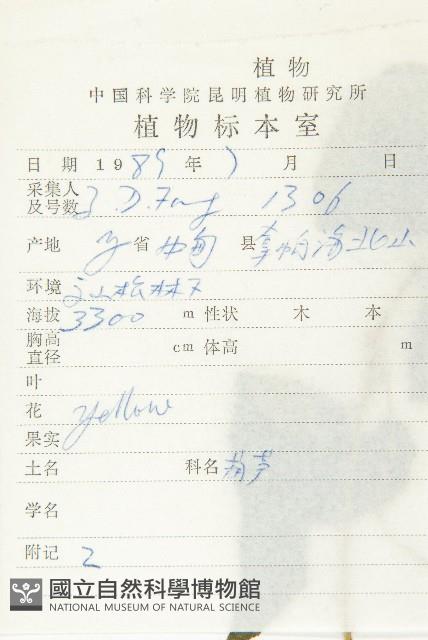 植物
中国科学院昆明植物研究所
植物标本室
日期 1989年7月 日
采集人
及号数 Z. D. Fang 1306
产地 省中甸县拿帕海北山
环境 松林下
海拔 3300 m 性状 木 本
胸高
直径 cm 体高 m
叶
花 yellow
果实
土名 科名
学名
附记 2
國立自然科學博物館
NATIONAL MUSEUM OF NATURAL SCIENCE